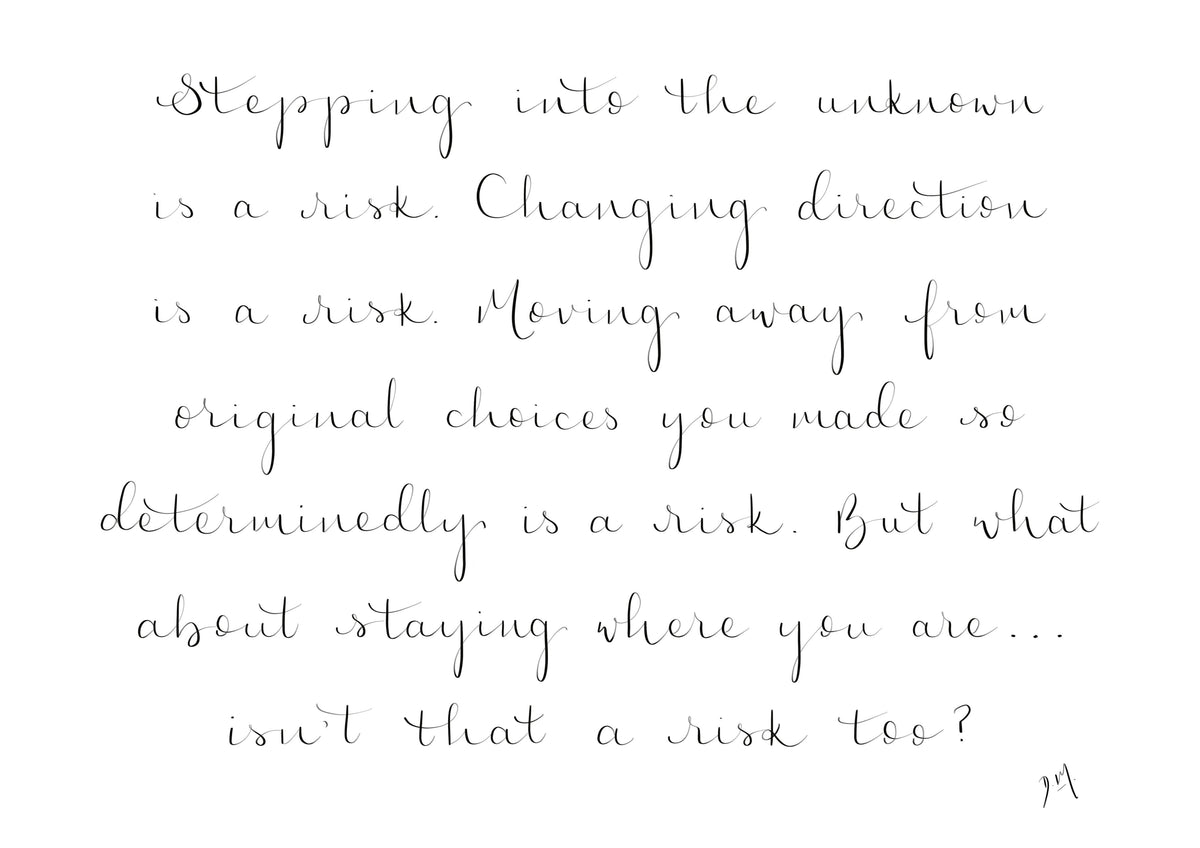 Stepping into the unknown
is a risk. Changing direction
is a risk. Moving away from
original choices you made so
determinedly is a risk. But what
about staying where you are...
isn't that a risk too?
D.M.